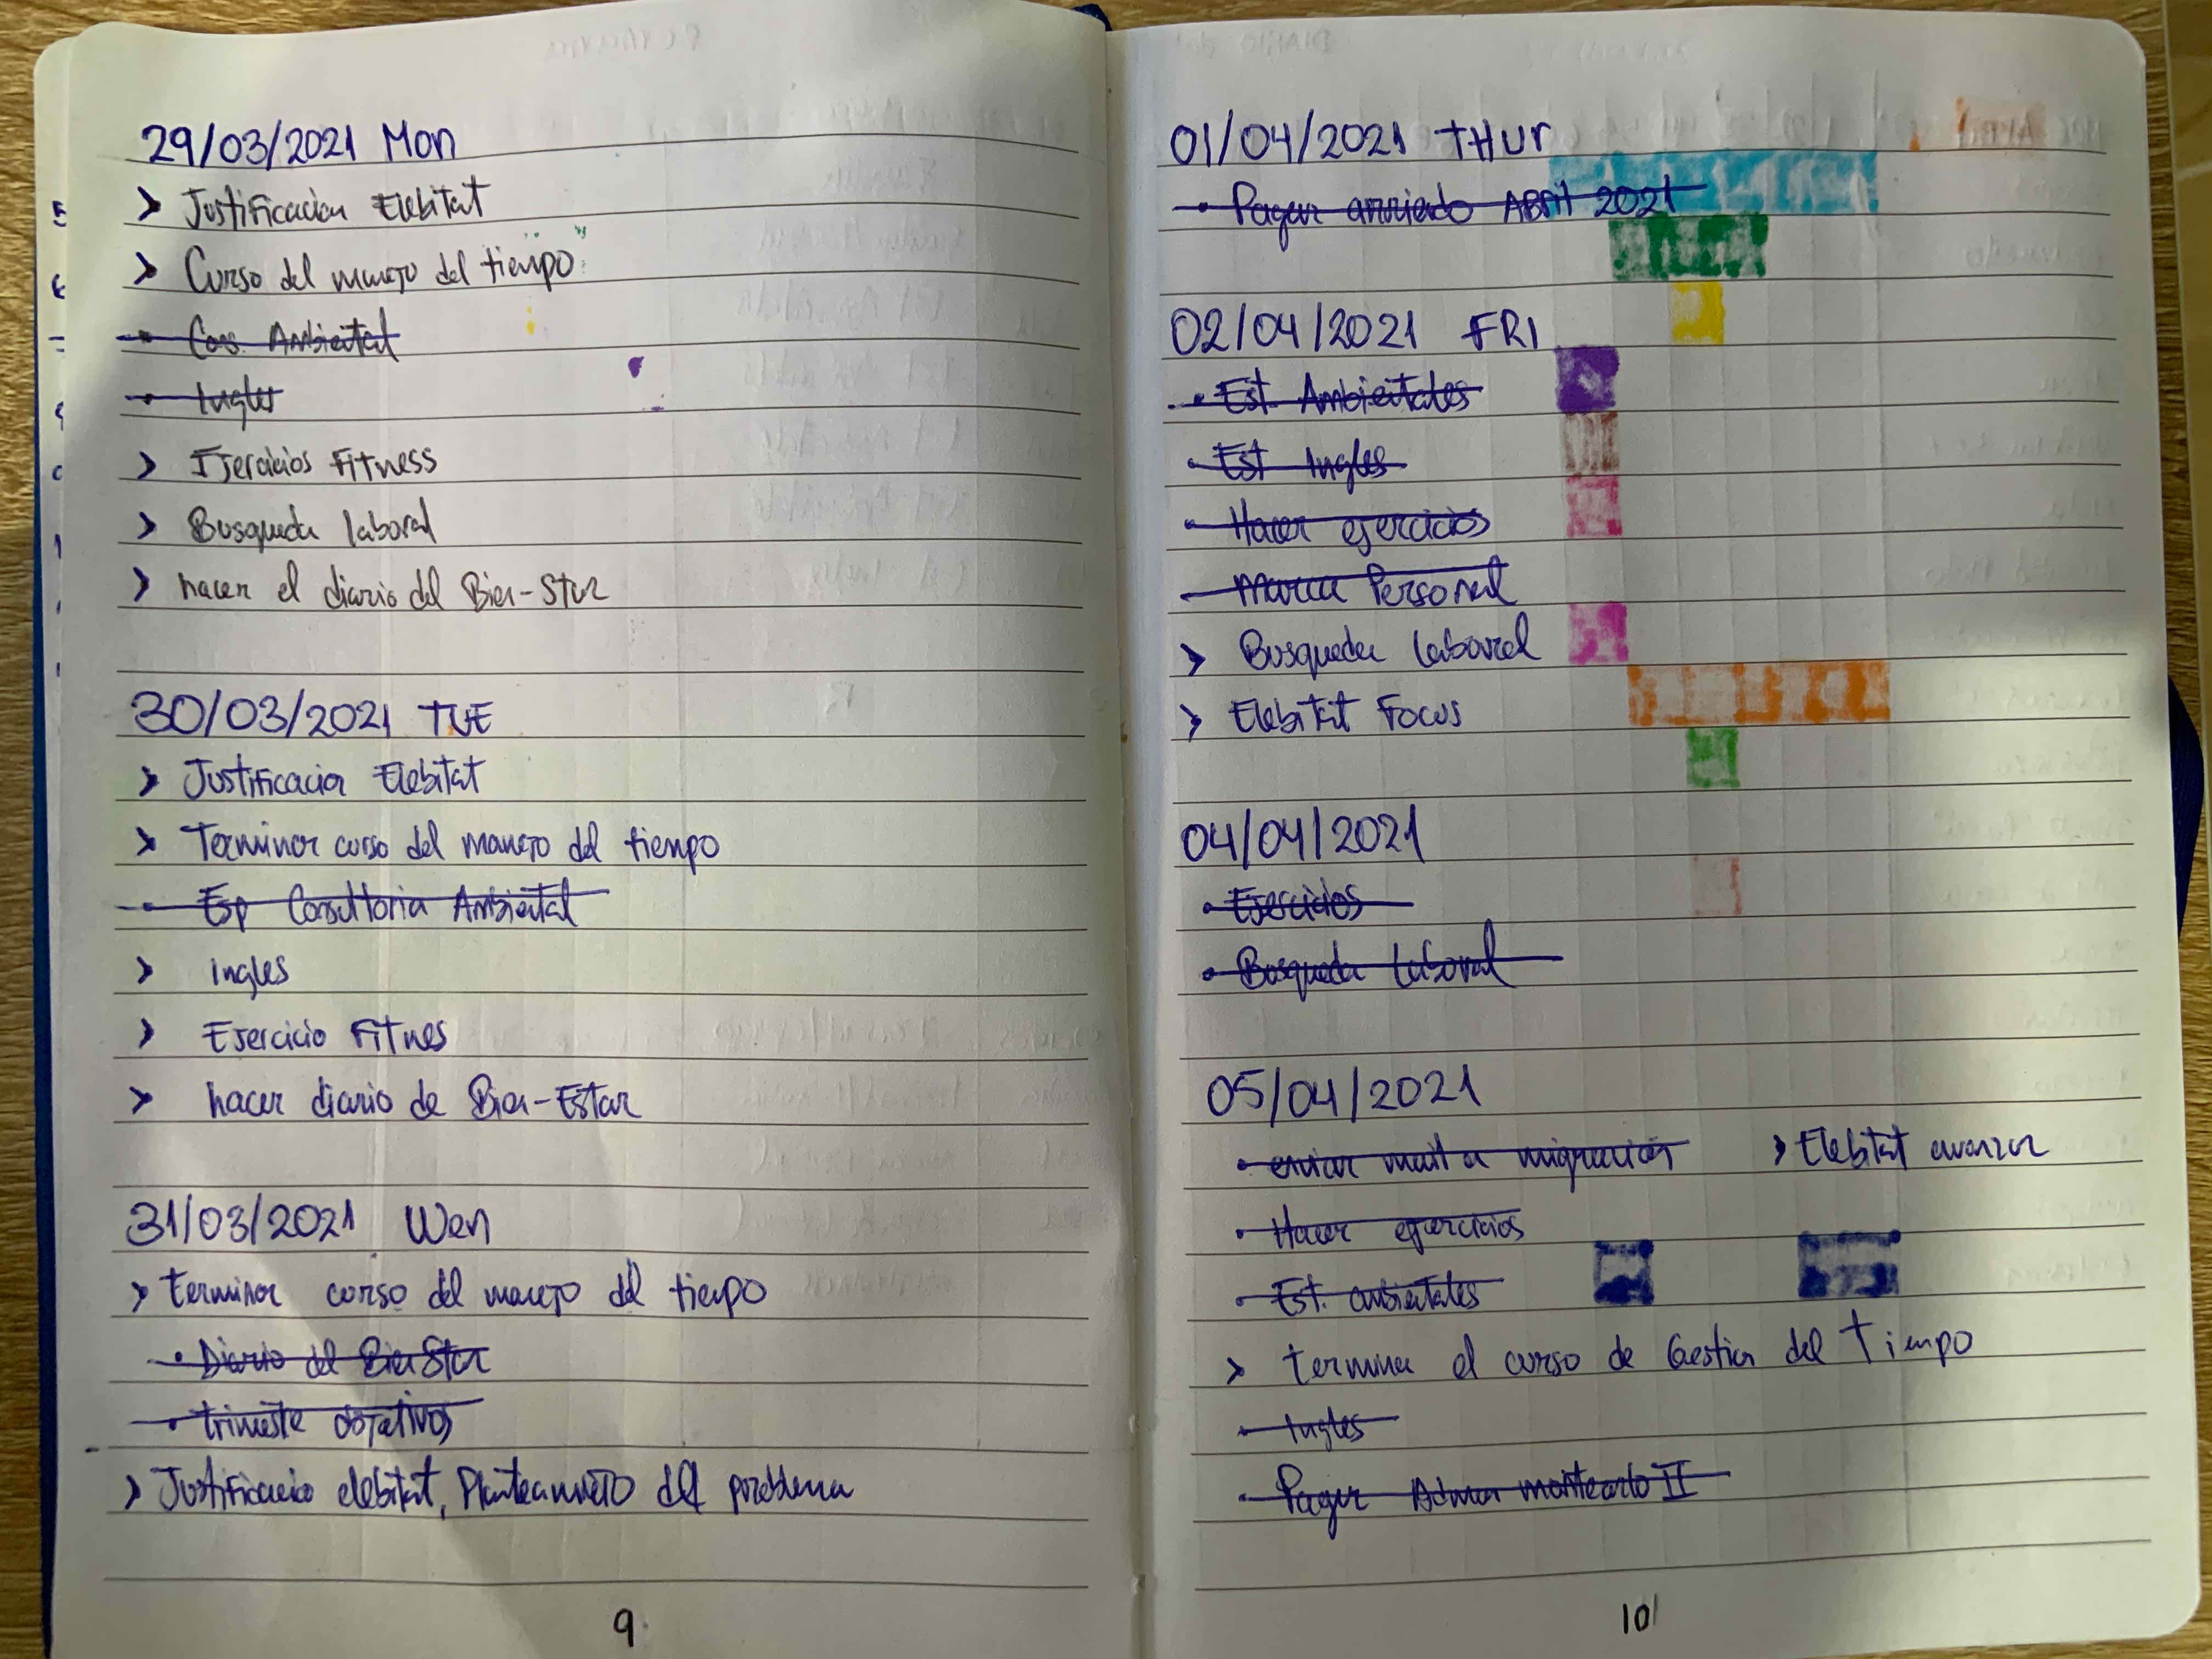 29/03/2021 Mon
> Justificacion Elebitat
> Curso del manejo del tiempo
• Cons. Ambiental
• Ingles
> Ejercicios Fitness
> Busqueda laboral
> hacer el diario del Bien-Star
30/03/2021 TUE
> Justificacion Elebitat
> Terminar curso del manejo del tiempo
• Esp Consultoria Ambiental
> ingles
> Ejercicio Fitnes
> hacer diario de Bien-Estar
31/03/2021 Wen
> terminar curso del manejo del tiempo
• Diario del Bien Star
• trimestre objetivos
> Justificacio elebitat, Planteamieto del problema
9
01/04/2021 THUr
• Pagar arriedo ABril 2021
02/04/2021 FRI
• Est. Ambientales
• Est Ingles
• Hacer ejercicios
Marca Personal
> Busqueda laboral
> Elebitat Focus
04/04/2021
• Ejercicios
• Busqueda laboral
05/04/2021
• enviar mail a migracion > Elebitat avanzar
• Hacer ejercicios
• Est. ambientales
> termina el curso de Gestion del Tiempo
• Ingles
• Pagar Admon montecarlo II
10